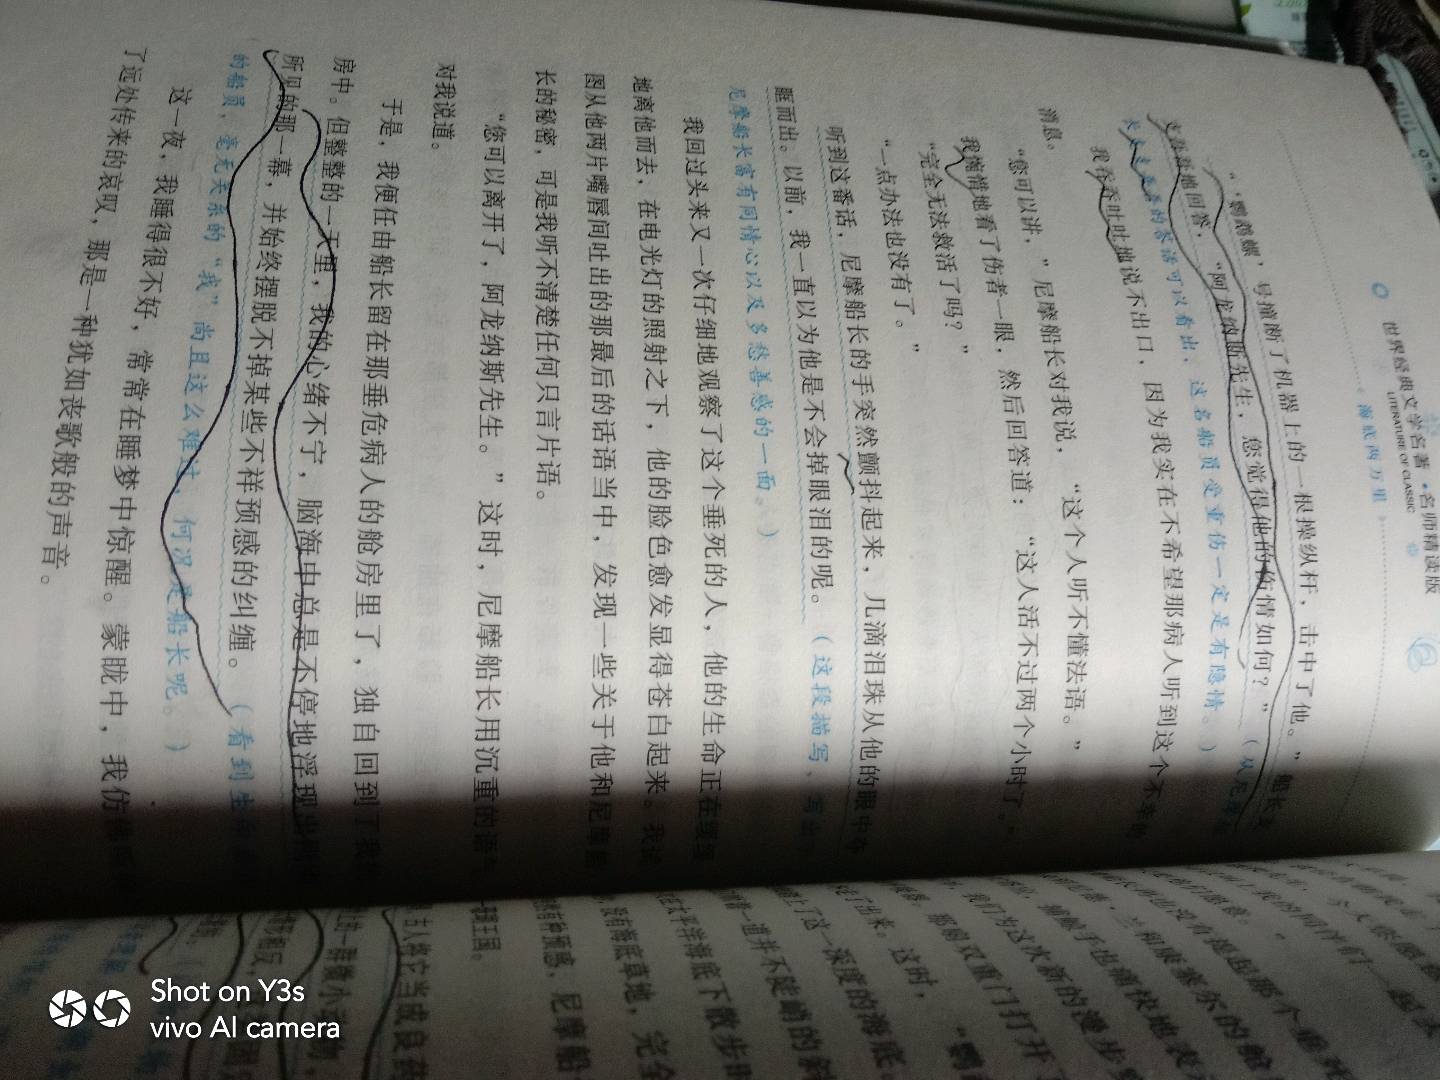 世界经典文学名著·名师精读版
LITERATURE OF CLASSIC
海底两万里
“‘鹦鹉螺’号撞断了机器上的一根操纵杆，击中了他。”船长支
支吾吾地回答，“阿龙纳斯先生，您觉得他的伤情如何？”（从尼摩船
长支支吾吾的答话可以看出，这名船员受重伤一定是有隐情。）
我吞吞吐吐地说不出口，因为我实在不希望那病人听到这个不幸的
消息。
“您可以讲，”尼摩船长对我说，“这个人听不懂法语。”
我惋惜地看了伤者一眼，然后回答道：“这人活不过两个小时了。”
“完全无法救活了吗？”
“一点办法也没有了。”
听到这番话，尼摩船长的手突然颤抖起来，几滴泪珠从他的眼中夺
眶而出。以前，我一直以为他是不会掉眼泪的呢。（这段描写，写出
尼摩船长富有同情心以及多愁善感的一面。）
我回过头来又一次仔细地观察了这个垂死的人，他的生命正在缓缓
地离他而去，在电光灯的照射之下，他的脸色愈发显得苍白起来。我试
图从他两片嘴唇间吐出的那最后的话语当中，发现一些关于他和尼摩船
长的秘密，可是我听不清楚任何只言片语。
“您可以离开了，阿龙纳斯先生。”这时，尼摩船长用沉重的语气
对我说道。
于是，我便任由船长留在那垂危病人的舱房里了，独自回到了我的
房中。但整整的一天里，我的心绪不宁，脑海中总是不停地浮现出刚刚
所见的那一幕，并始终摆脱不掉某些不祥预感的纠缠。（看到生命
的船员，毫无关系的“我”尚且这么难过，何况是船长呢。）
这一夜，我睡得很不好，常常在睡梦中惊醒。蒙眬中，我仿佛听
了远处传来的哀叹，那是一种犹如丧歌般的声音。
我们为这次新的漫步
那扇双重门打开了
这时，“鹦
了这一深度的海底。
着一道并不陡峭的斜
太平洋海底下散步时
没有海底草地，完全
种预感，尼摩船
王国。
古人将它当成良药
Shot on Y3s
vivo AI camera